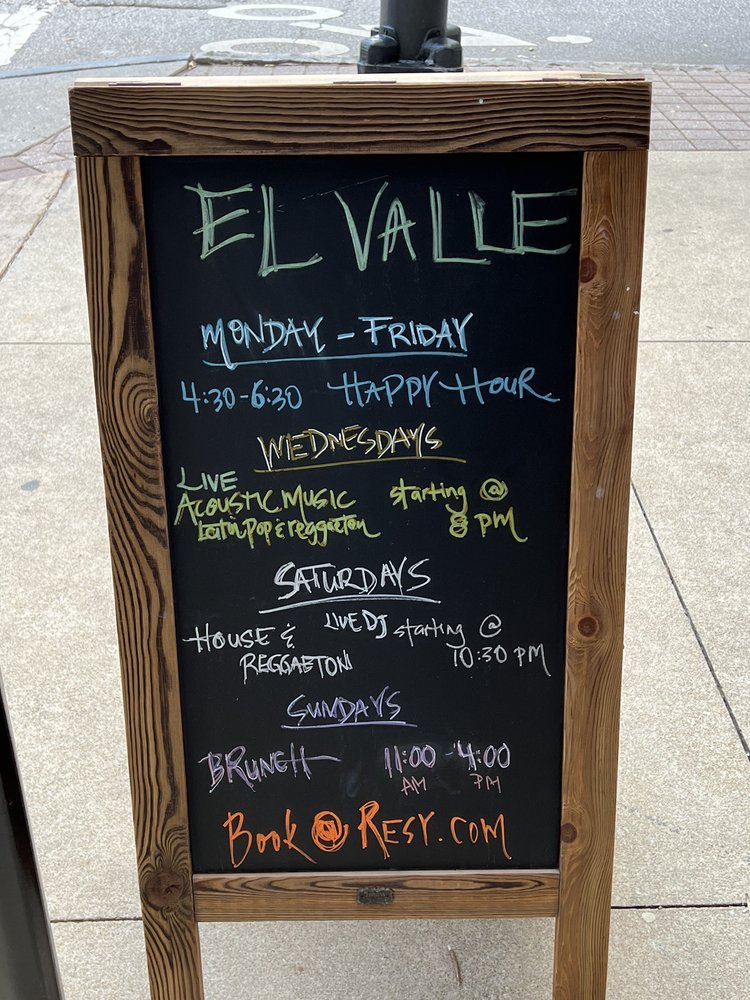 EL VALLE
MONDAY - FRIDAY
4:30-6:30 HAPPY HOUR
WEDNESDAYS
LIVE
ACOUSTIC MUSIC starting @
Latin pop & reggaeton 8 PM
SATURDAYS
HOUSE & LIVE DJ starting @
REGGAETON 10:30 PM
SUNDAYS
BRUNCH 11:00 - 4:00
AM PM
Book @ RESY.COM